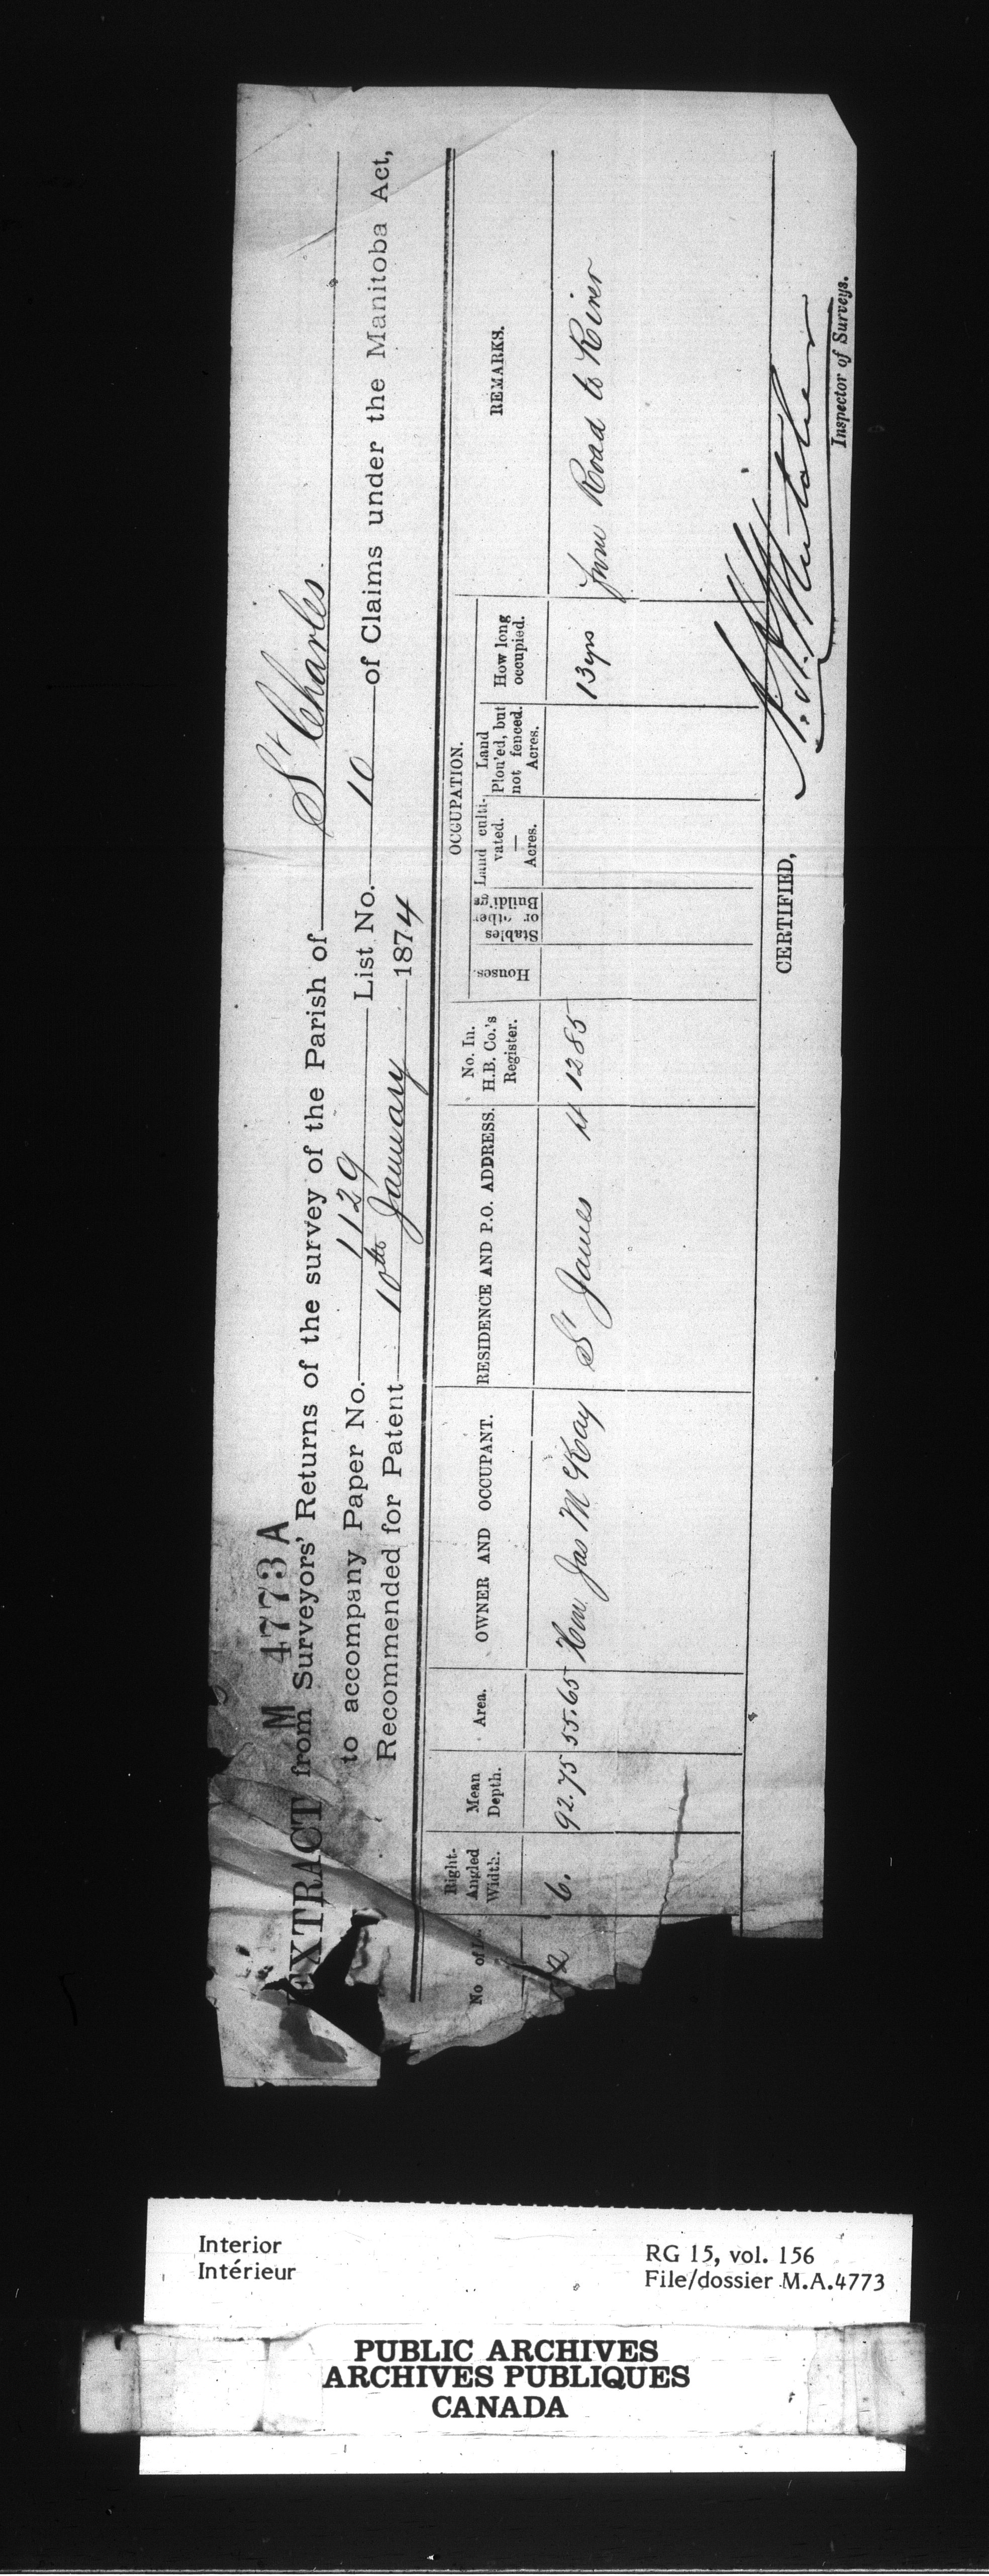 M 4773 A
EXTRACT from Surveyors' Returns of the survey of the Parish of St Charles.
to accompany Paper No. 1129 List No. 10 of Claims under the Manitoba Act,
Recommended for Patent 10th January 1874
No of
Right-Angled Width.
Mean Depth.
Area.
OWNER AND OCCUPANT.
RESIDENCE AND P.O. ADDRESS.
No. In. H.B. Co.'s Register.
OCCUPATION.
Houses.
Stables or other Buildi'gs
Land culti-vated. — Acres.
Land Plou'ed, but not fenced. Acres.
How long occupied.
REMARKS.
6. 92.75 55.65 Hon. Jas McKay St James 1285 13 yrs from Road to River
CERTIFIED,
Inspector of Surveys.
Interior
Intérieur
RG 15, vol. 156
File/dossier M.A.4773
PUBLIC ARCHIVES
ARCHIVES PUBLIQUES
CANADA